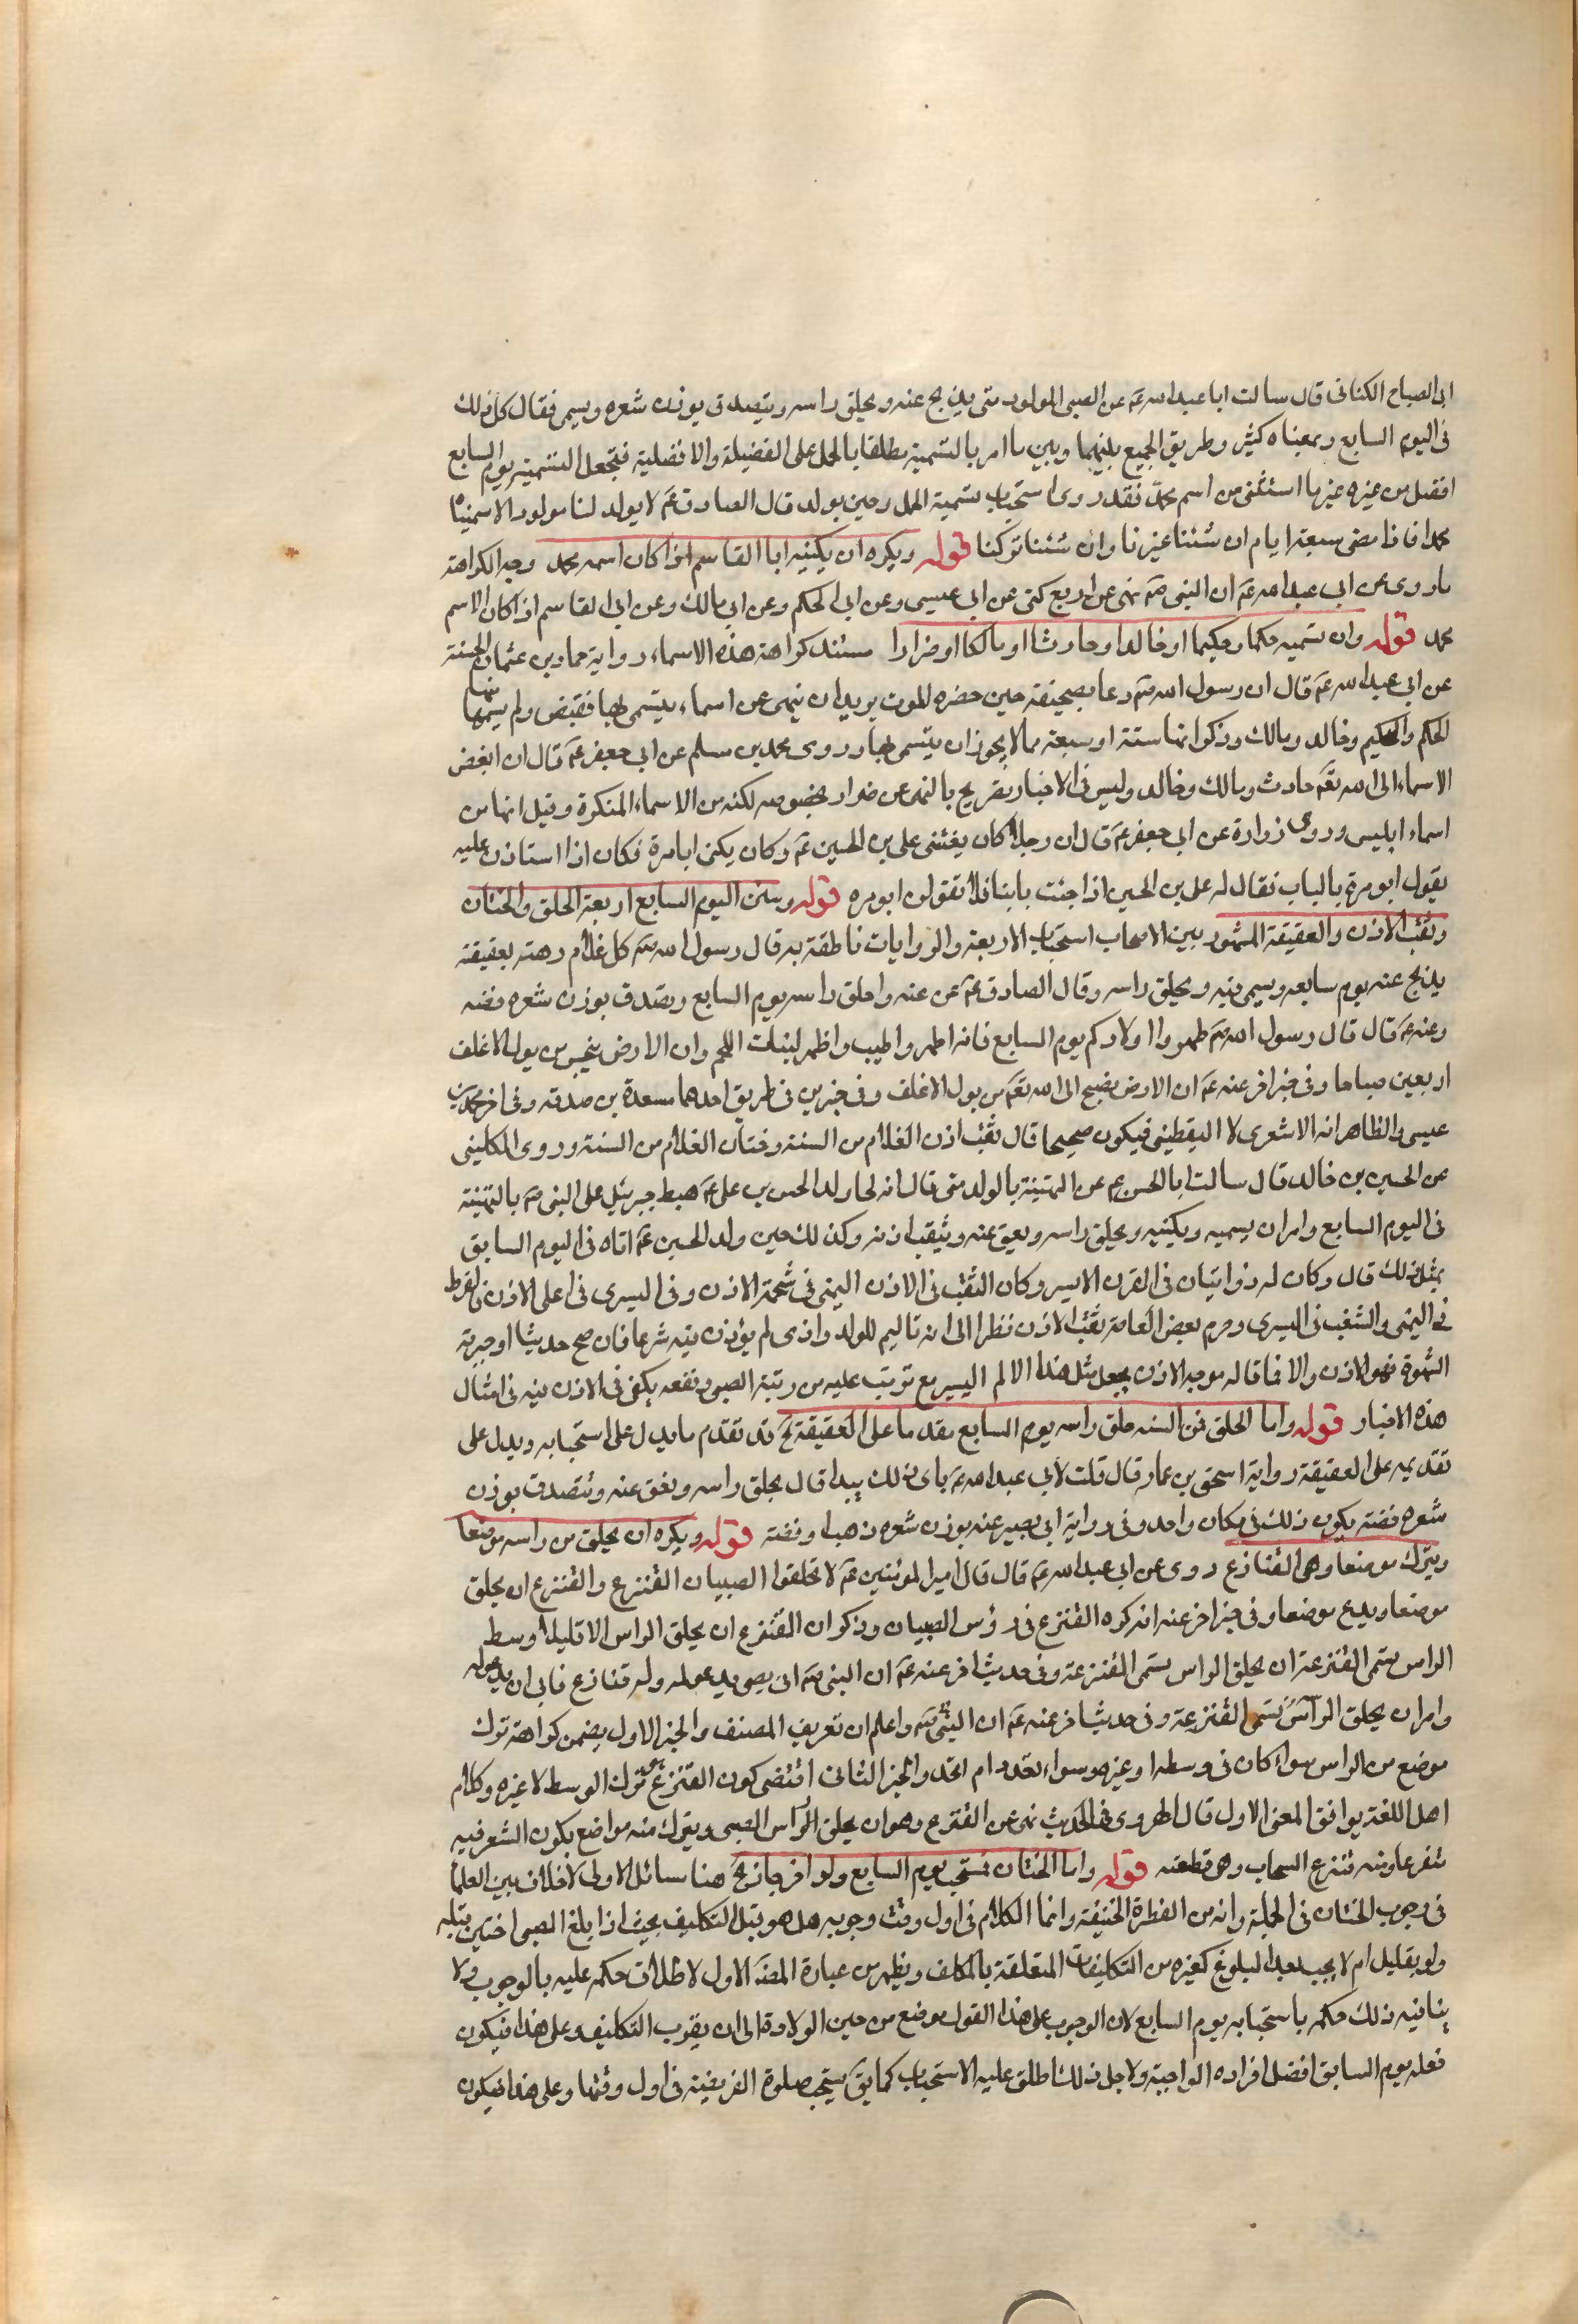 ابى الصباح الكنانى قال سالت ابا عبد الله عم عن الصبى المولود متى يذبح عنه ويحلق راسه ويتصدق بوزن شعره ويسمى فقال كل ذلك
فى اليوم السابع وبمعناه كثير وطريق الجمع بينهما وبين ما امر بالتسمية مطلقا بالحمل على الفضيلة والافضلية فتجعل التسمية يوم السابع
افضل من غيره غير ما استثنى من اسم محمد فقد روى استحباب تسمية الحمل وحين يولد قال الصادق عم لا يولد لنا مولود الا سميناه
محمدا فاذا مضى سبعة ايام ان شئنا غيرنا وان شئنا تركنا قوله ويكره ان يكنيه ابا القاسم اذا كان اسمه محمد وجه الكراهة
ما روى عن ابى عبد الله عم ان النبى صم نهى عن اربع كنى عن ابى عيسى وعن ابى الحكم وعن ابى مالك وعن ابى القاسم اذا كان الاسم
محمد قوله وان تسميه حكما وحكيما او خالدا وحارثا او مالكا او ضرارا مستند كراهة هذه الاسماء رواية حماد بن عثمان الحسنة
عن ابى عبد الله عم قال ان رسول الله صم دعا بصحيفة حين حضره الموت يريد ان ينهى عن اسماء يتسمى بها فقبض ولم يسمها منها
الحكم والحكيم وخالد ومالك وذكر انها ستة او سبعة مما لا يجوز ان يتسمى بها وروى محمد بن مسلم عن ابى جعفر عم قال ان ابغض
الاسماء الى الله تعم حارث ومالك وخالد وليس فى الاخبار تصريح بالنهى عن ضرار بخصوصه لكنه من الاسماء المنكرة وقيل انها من
اسماء ابليس وروى زرارة عن ابى جعفر عم قال ان رجلا كان يغشى على بن الحسين عم وكان يكنى ابا مرة فكان اذا استاذن عليه
يقول ابو مرة بالباب فقال له على بن الحسين اذا جئت بابنا فلا تقولن ابو مره قوله وسنن اليوم السابع اربعة الحلق والختان
وثقب الاذن والعقيقة المشهور بين الاصحاب استحباب الاربعة والروايات ناطقة به قال رسول الله صم كل غلام رهنة بعقيقته
يذبح عنه يوم سابعه ويسمى فيه ويحلق راسه وقال الصادق عم عق عنه واحلق راسه يوم السابع وتصدق بوزن شعره فضه
وعنه عم قال قال رسول الله صم طهروا اولادكم يوم السابع فانه اطهر واطيب واظهر لنبات اللحم وان الارض ينجس من بول الاغلف
اربعين صباحا وفى خبر اخر عنه عم ان الارض يضج الى الله تعم من بول الاغلف وفى خبرين فى طريق احدهما مسعدة بن صدقه وفى اخر محمد بن
عيسى والظاهر انه الاشعرى لا اليقطينى فيكون صحيحا قال ثقب اذن الغلام من السنة وختان الغلام من السنة وروى الكلينى
عن الحسين بن خالد قال سالت ابا الحسن عم عن التهنية بالولد متى قال انه لما ولد الحسن بن على عم هبط جبرئيل على النبى صم بالتهنية
فى اليوم السابع وامر ان يسميه ويكنيه ويحلق راسه ويعق عنه ويثقب اذنه وكذلك حين ولد الحسين عم اتاه فى اليوم السابق
بمثل ذلك قال وكان له ذوابتان فى القرن الايسر وكان الثقب فى الاذن اليمنى فى شحمة الاذن وفى اليسرى فى اعلى الاذن فالقرط
فى اليمنى والشنف فى اليسرى وحرم بعض العامة ثقب الاذن نظرا الى انه تاليم للولد واذى لم يؤذن فيه شرعا فان صح حديثا او جبرية
الشهرة فهو الاذن والا فما قاله موجه الاذن بجعل مثل هذا الالم اليسير مع ترتب عليه من رتبة الصبى ونفعه يكفى فى الاذن فيه فى امثال
هذه الاخبار قوله واما الحلق فمن السنه حلق راسه يوم السابع مقدما على العقيقة الخ قد تقدم ما يدل على استحبابه ويدل على
تقديمه على العقيقة رواية اسحق بن عمار قال قلت لابى عبد الله عم باى ذلك يبدا قال يحلق راسه ويعق عنه ويتصدق بوزن
شعره فضة يكون ذلك فى مكان واحد وفى رواية ابى بصير عنه بوزن شعره ذهبا وفضة قوله ويكره ان يحلق من راسه موضعا
ويترك موضعا وهى القنازع روى عن ابى عبد الله عم قال قال امير المؤمنين عم لا تحلقوا الصبيان القنزع والقنزع ان يحلق
موضعا ويدع موضعا وفى خبر اخر عنه انه كره القنزع فى رؤس الصبيان وذكر ان القنزع ان يحلق الراس الا قليلا وسط
الراس يسمى القنزعة ان يحلق الراس يسمى القنزعة وفى حديث اخر عنه عم ان النبى صم اتى بصبى يدعو له وله قنازع فابى ان يدعو له
وامر ان يحلق الراس يسمى القنزعة وفى حديث اخر عنه عم ان النبى صم واعلم ان تعريف المصنف والخبر الاول يضمن كراهة ترك
موضع من الراس سواء كان فى وسطه او غيره وسواء تعدد ام اتحد والخبر الثانى اقتضى كون القنزع هو ترك الوسط لا غيره وكلام
اهل اللغة يوافق المعنى الاول قال الهروى فى الحديث نهى عن القنزع وهو ان يحلق الراس الصبى ويترك منه مواضع يكون الشعر فيه
متفرعا ومنه قنزع السحاب وهى قطعته قوله واما الختان فمستحب يوم السابع ولو اخر جاز الخ هنا مسائل الاولى لا خلاف بين العلما
فى وجوب الختان فى الجملة وانه من الفطرة الحنيفة وانما الكلام فى اول وقت وجوبه هل هو قبل التكليف بحيث اذا بلغ الصبى اختين قبله
ولو بقليل ام لا يجب بعد البلوغ كغيره من التكليفات المتعلقة بالمكلف ويظهر من عبارة المصنف الاول لاطلاق حكمه عليه بالوجوب ولا
ينافيه ذلك حكمه باستحبابه يوم السابع لان الوجوب على هذا القول موضع من حين الولادة الى ان يقرب التكليف وعلى هذا فيكون
فعله يوم السابق افضل افراده الواجبة ولاجل ذلك اطلق عليه الاستحباب كما يق يستحب صلوة الفريضة فى اول وقتها وعلى هذا فيكون